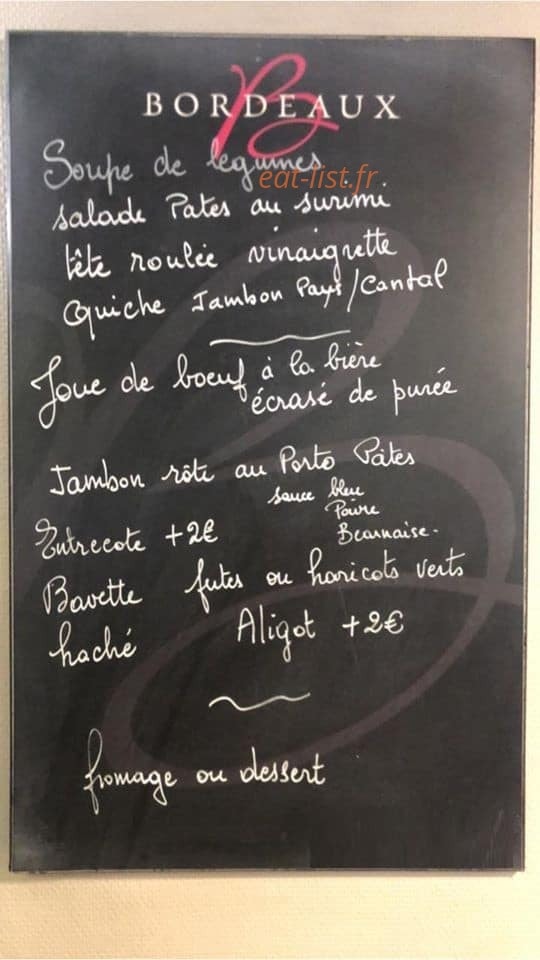 BORDEAUX
Soupe de légumes
eat-list.fr
salade Pates au surimi
tête roulée vinaigrette
Quiche Jambon Pays/Cantal
Joue de boeuf à la bière
écrasé de purée
Jambon rôti au Porto Pâtes
sauce bleu
Poivre
Entrecote +2€ Bearnaise.
Bavette frites ou haricots verts
haché Aligot +2€
fromage ou dessert